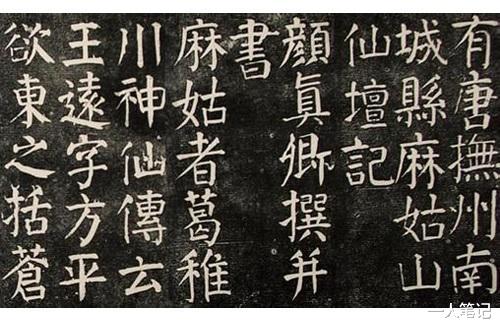 有唐撫州南
城縣麻姑山
仙壇記
顏真卿撰并
書
麻姑者葛稚
川神仙傳云
王遠字方平
欲東之括蒼
一人笔记